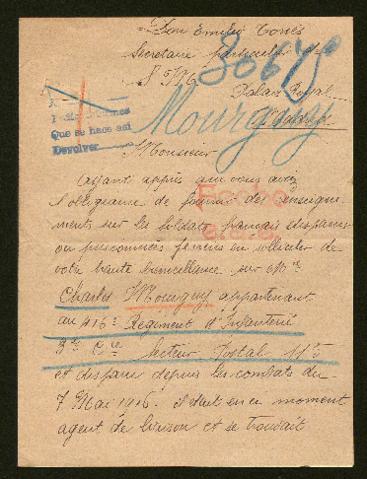 Don Emilio Torres
Secretaire particulier de
S M
30675
Palais Royal
Mourguy
Que se hace así
Devolver
Monsieur
Ayant appris que vous aviez
l'obligeance de fournir des renseigne
ments sur les soldats français disparus
ou prisonniers je viens en solliciter de
votre haute bienveillance sur Mr
Charles Mourguy appartenant
au 416e Régiment d'Infanterie
3e Cie Secteur Postal
et disparu depuis les combats du
7 Mai 1916. il était en ce moment
agent de liaison et se trouvait